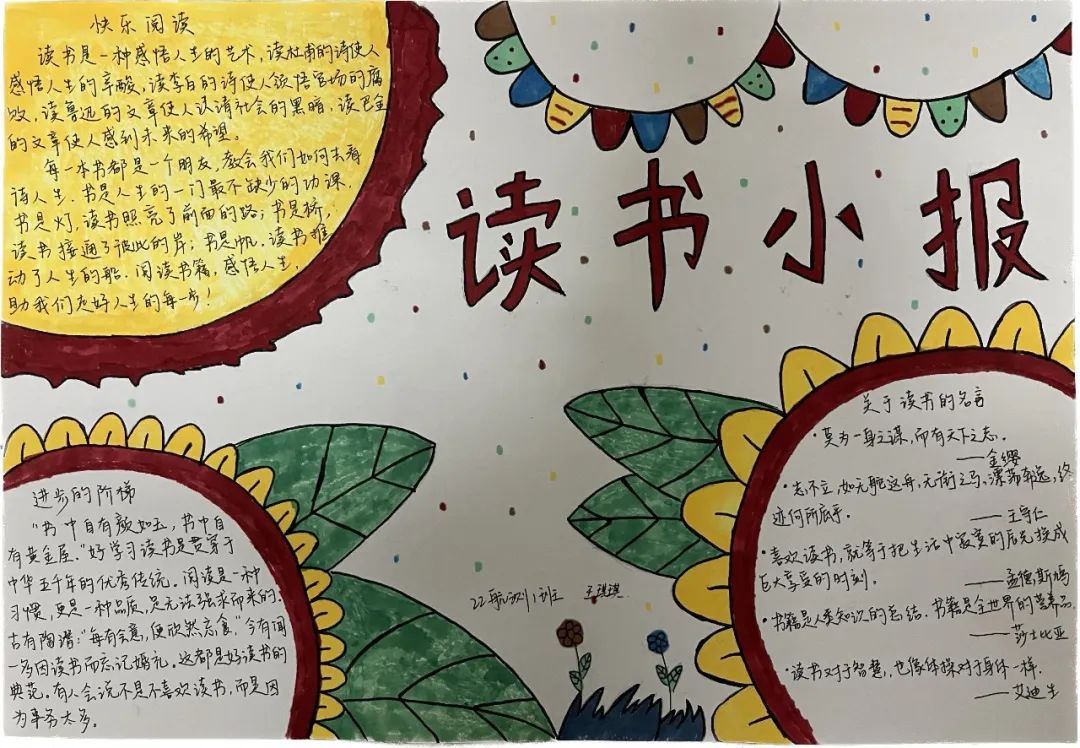 读书小报
快乐阅读
读书是一种感悟人生的艺术,读杜甫的诗使人
感悟人生的辛酸,读李白的诗使人领悟官场的腐
败,读鲁迅的文章使人认清社会的黑暗,读巴金
的文章使人感到未来的希望。
每一本书都是一个朋友,教会我们如何去看
待人生.书是人生的一门最不缺少的功课.
书是灯,读书照亮了前面的路;书是桥,
读书接通了彼此的岸;书是帆,读书推
动了人生的船.阅读书籍,感悟人生,
助我们走好人生的每一步!
进步的阶梯
"书中自有颜如玉,书中自
有黄金屋."好学习读书是贯穿于
中华五千年的优秀传统.阅读是一种
习惯,更是一种品质,是无法强求而来的.
古有陶潜:"每有会意,便欣然忘食."今有闻
一多因读书而忘记婚礼.这都是好读书的
典范.有人会说不是不喜欢读书,而是因
为事务太多。
关于读书的名言
·莫为一身之谋,而有天下之志.
——金缨
·志不立,如无舵这舟,无衔之马,漂荡奔逸,终
亦何所底乎.
——王守仁
·喜欢读书,就等于把生活中寂寞的辰光换成
巨大享受的时刻.
——孟德斯鸠
·书籍是人类知识的总结.书籍是全世界的营养品.
——莎士比亚
·读书对于智慧,也像体操对于身体一样.
——艾迪生
22航测1班 王琪琪